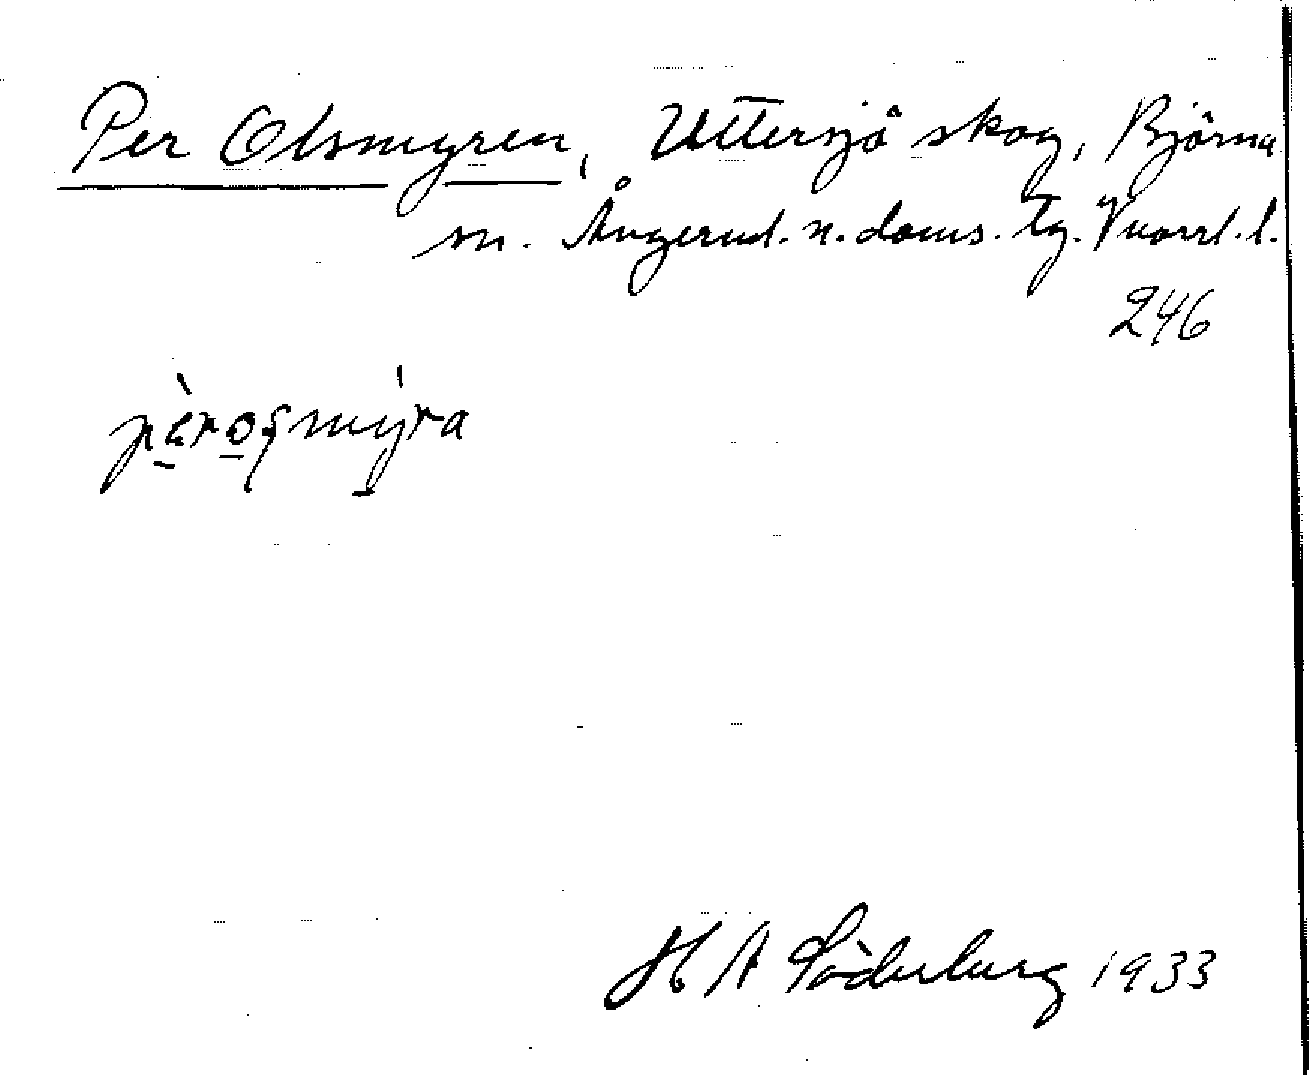 Per Olsmyren, Uttersjö skog, Björna
sn. Ångerml. n. doms. tg. Vnorrl. l.
246
pèrosmýra
H A Söderberg 1933